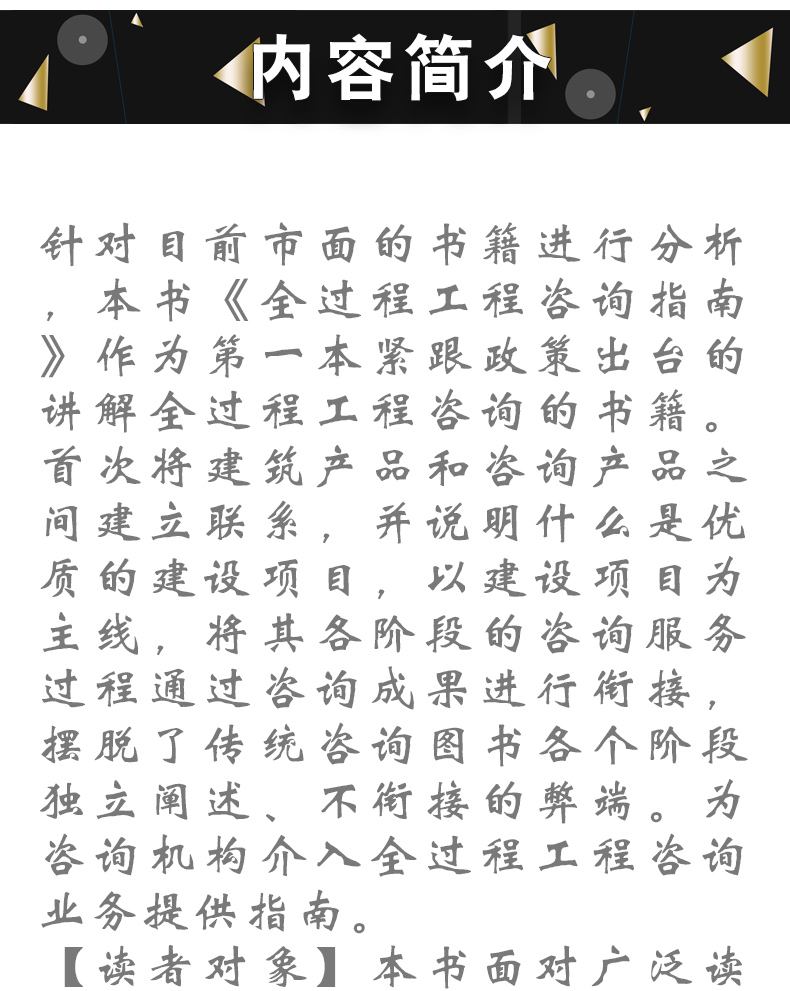 内容简介
针对目前市面的书籍进行分析
，本书《全过程工程咨询指南
》作为第一本紧跟政策出台的
讲解全过程工程咨询的书籍。
首次将建筑产品和咨询产品之
间建立联系，并说明什么是优
质的建设项目，以建设项目为
主线，将其各阶段的咨询服务
过程通过咨询成果进行衔接，
摆脱了传统咨询图书各个阶段
独立阐述、不衔接的弊端。为
咨询机构介入全过程工程咨询
业务提供指南。
【读者对象】本书面对广泛读